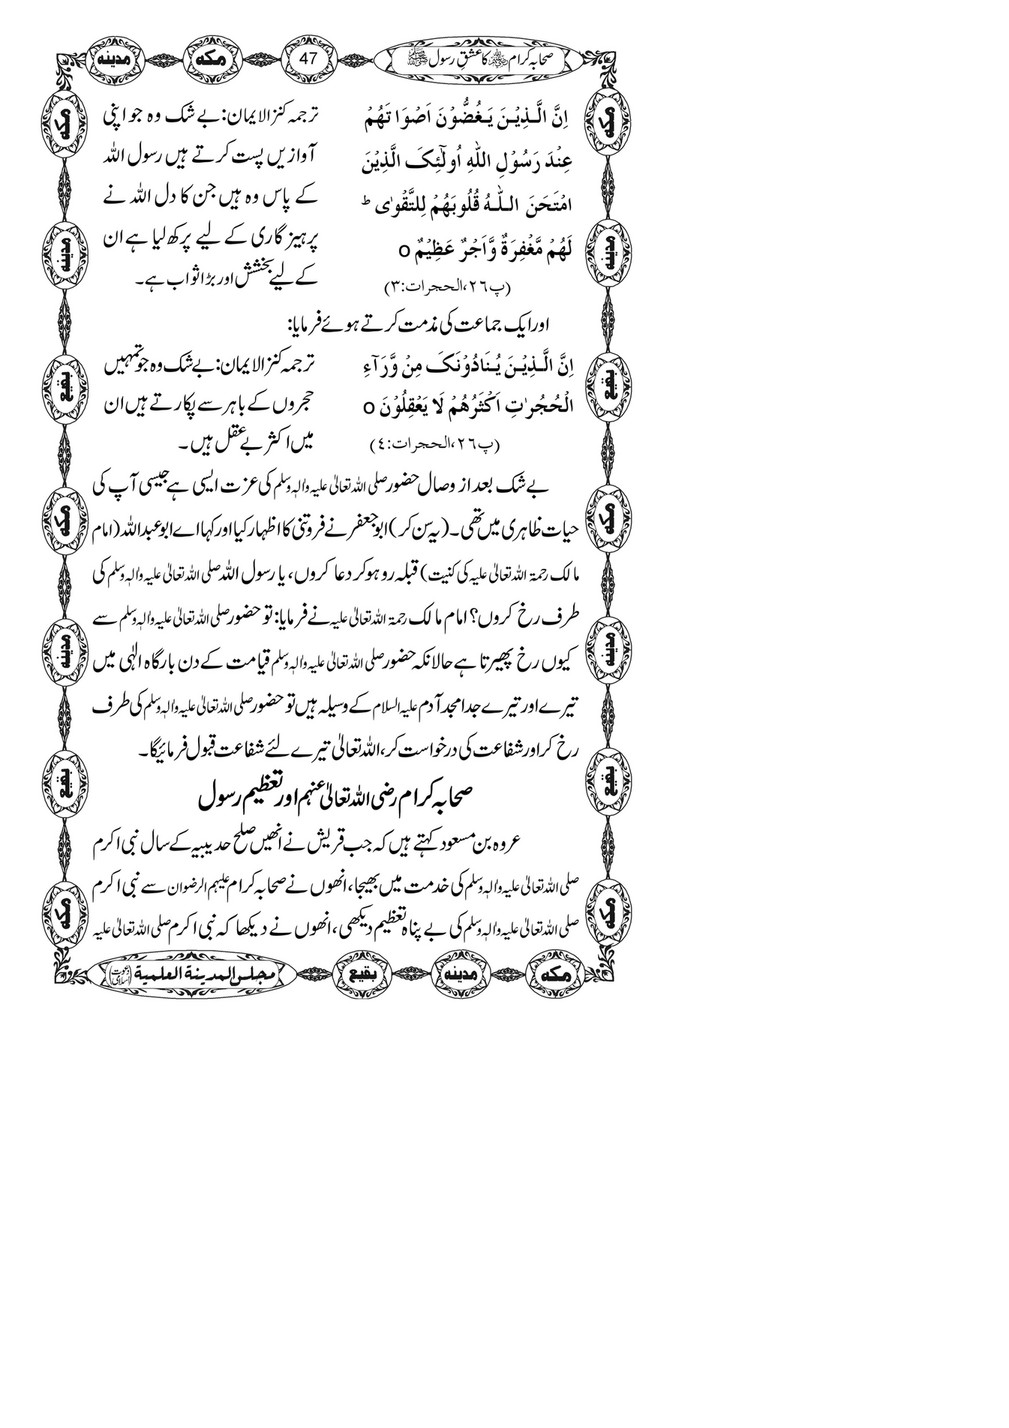 صحابہ کرام ﷺ کا عشق رسول ﷺ 47 مکہ مدینہ
اِنَّ الَّـذِیْـنَ یَـغُضُّوْنَ اَصْوَا تَهُمْ
عِنْدَ رَسُوْلِ اللّٰهِ اُولٰٓئِکَ الَّذِیْنَ
امْتَحَنَ الـلّٰـهُ قُلُوبَهُمْ لِلتَّقْوٰی ط
لَهُمْ مَّغْفِرَةٌ وَّاَجْرٌ عَظِیْمٌ o
(پ٢٦،الحجرات:٣)
ترجمہ کنز الایمان: بے شک وہ جو اپنی
آوازیں پست کرتے ہیں رسول اللہ
کے پاس وہ ہیں جن کا دل اللہ نے
پرہیزگاری کے لیے پرکھ لیا ہے ان
کے لیے بخشش اور بڑا ثواب ہے۔
اور ایک جماعت کی مذمت کرتے ہوئے فرمایا:
اِنَّ الَّـذِیْـنَ یُـنَادُوْنَکَ مِنْ وَّرَآءِ
الْحُجُرٰتِ اَکْثَرُهُمْ لَا یَعْقِلُوْنَ o
(پ٢٦،الحجرات:٤)
ترجمہ کنز الایمان: بے شک وہ جو تمہیں
حجروں کے باہر سے پکارتے ہیں ان
میں اکثر بے عقل ہیں۔
بے شک بعد از وصال حضور صلی اللہ تعالیٰ علیہ والہٖ وسلم کی عزت ایسی ہے جیسی آپ کی
حیات ظاہری میں تھی۔ (یہ سن کر) ابو جعفر نے فروتنی کا اظہار کیا اور کہا اے ابو عبداللہ (امام
مالک رحمۃ اللہ تعالیٰ علیہ کی کنیت) قبلہ رو ہو کر دعا کروں، یا رسول اللہ صلی اللہ تعالیٰ علیہ والہٖ وسلم کی
طرف رخ کروں؟ امام مالک رحمۃ اللہ تعالیٰ علیہ نے فرمایا: تو حضور صلی اللہ تعالیٰ علیہ والہٖ وسلم سے
کیوں رخ پھیرتا ہے حالانکہ حضور صلی اللہ تعالیٰ علیہ والہٖ وسلم قیامت کے دن بارگاہ الٰہی میں
تیرے اور تیرے جد امجد آدم علیہ السلام کے وسیلہ ہیں تو حضور صلی اللہ تعالیٰ علیہ والہٖ وسلم کی طرف
رخ کر اور شفاعت کی درخواست کر، اللہ تعالیٰ تیرے لئے شفاعت قبول فرمائیگا۔
صحابہ کرام رضی اللہ تعالیٰ عنہم اور تعظیم رسول
عروہ بن مسعود کہتے ہیں کہ جب قریش نے انھیں صلح حدیبیہ کے سال نبی اکرم
صلی اللہ تعالیٰ علیہ والہٖ وسلم کی خدمت میں بھیجا، انھوں نے صحابہ کرام علیہم الرضوان سے نبی اکرم
صلی اللہ تعالیٰ علیہ والہٖ وسلم کی بے پناہ تعظیم دیکھی، انھوں نے دیکھا کہ نبی اکرم صلی اللہ تعالیٰ علیہ
مکہ مدینہ بقیع مجلس المدینة العلمیة (دعوت اسلامی)
مکہ
مدینہ
بقیع
مکہ
مدینہ
بقیع
مکہ
مکہ
مدینہ
بقیع
مکہ
مدینہ
بقیع
مکہ